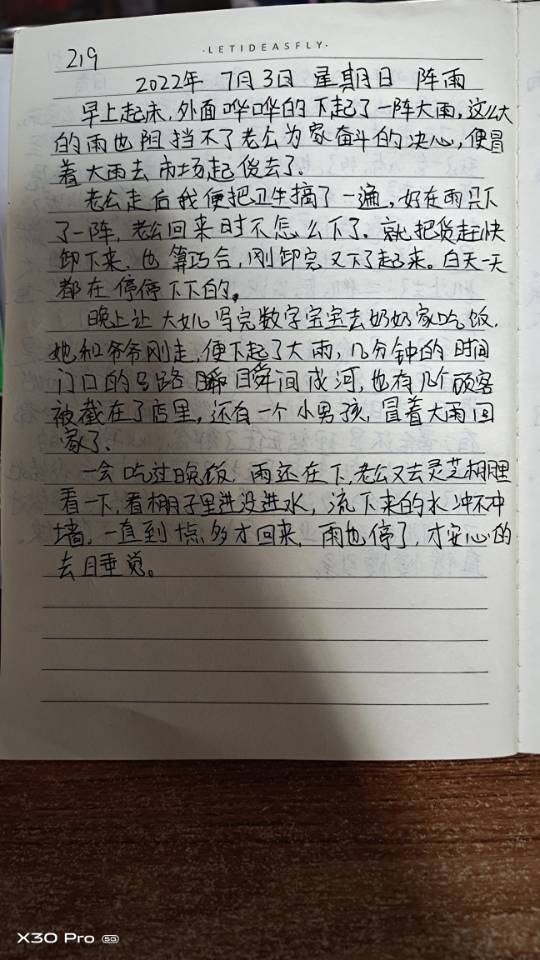 ·LETIDEASFLY·
219
2022年 7月3日 星期日 阵雨
早上起床,外面哗哗的下起了一阵大雨,这么大
的雨也阻挡不了老公为家奋斗的决心,便冒
着大雨去市场起货去了.
老公走后我便把卫生搞了一遍,好在雨只下
了一阵,老公回来时不怎么下了.就把货赶快
卸下来.也算巧合,刚卸完又下了起来。白天一天
都在停停下下的。
晚上让大女儿写完数字宝宝去奶奶家吃饭.
她和爷爷刚走,便下起了大雨,几分钟的时间
门口的马路瞬瞬间成河,也有几个顾客
被截在了店里,还有一个小男孩,冒着大雨回
家了.
一会吃过晚饭.雨还在下,老公又去灵芝棚里
看一下,看棚子里进没进水,流下来的水冲不冲
墙,一直到十点多才回来,雨也停了,才安心的
去睡觉。
X30 Pro 5G